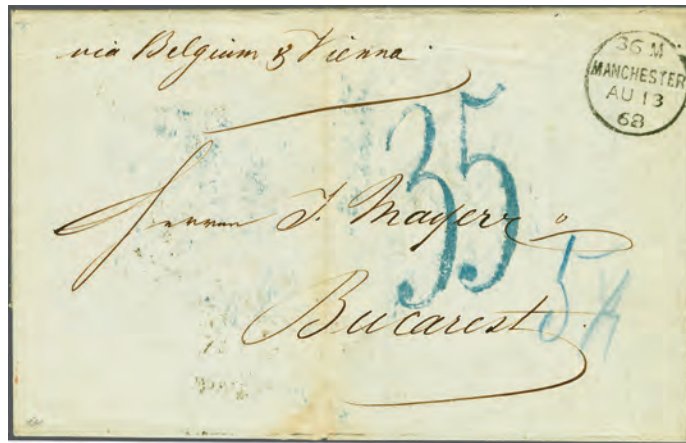 via Belgium & Vienna.
36 M
MANCHESTER
AU 13
68
35
Herren J. Mayerr
5
Bucarest